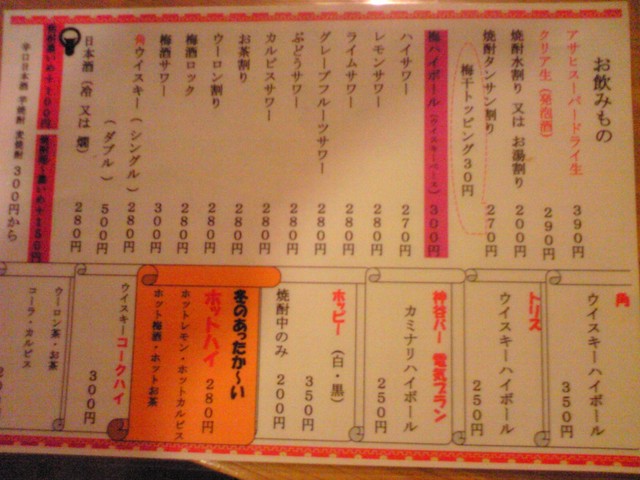 お飲みもの
アサヒスーパードライ生 390円
クリア生（発泡酒） 290円
焼酎水割り 又は お湯割り 200円
焼酎タンサン割り 270円
梅干トッピング30円
梅ハイボール（ウイスキーベース） 300円
ハイサワー 270円
レモンサワー 280円
ライムサワー 280円
グレープフルーツサワー 280円
ぶどうサワー 280円
カルピスサワー 280円
お茶割り 280円
ウーロン割り 280円
梅酒ロック 280円
梅酒サワー 300円
角ウイスキー（シングル） 280円
（ダブル） 500円
日本酒（冷 又は 燗） 280円
焼酎濃いめ+100円
辛口日本酒 芋焼酎 麦焼酎 300円から
角
ウイスキーハイボール
350円
トリス
ウイスキーハイボール
250円
神谷バー 電気ブラン
カミナリハイボール
250円
ホッピー（白・黒）
350円
焼酎中のみ 200円
冬のあったか～い
ホットハイ 280円
ホットレモン・ホットカルピス
ホット梅酒・ホットお茶
ウイスキーコークハイ
300円
ウーロン茶・お茶
コーラ・カルピス